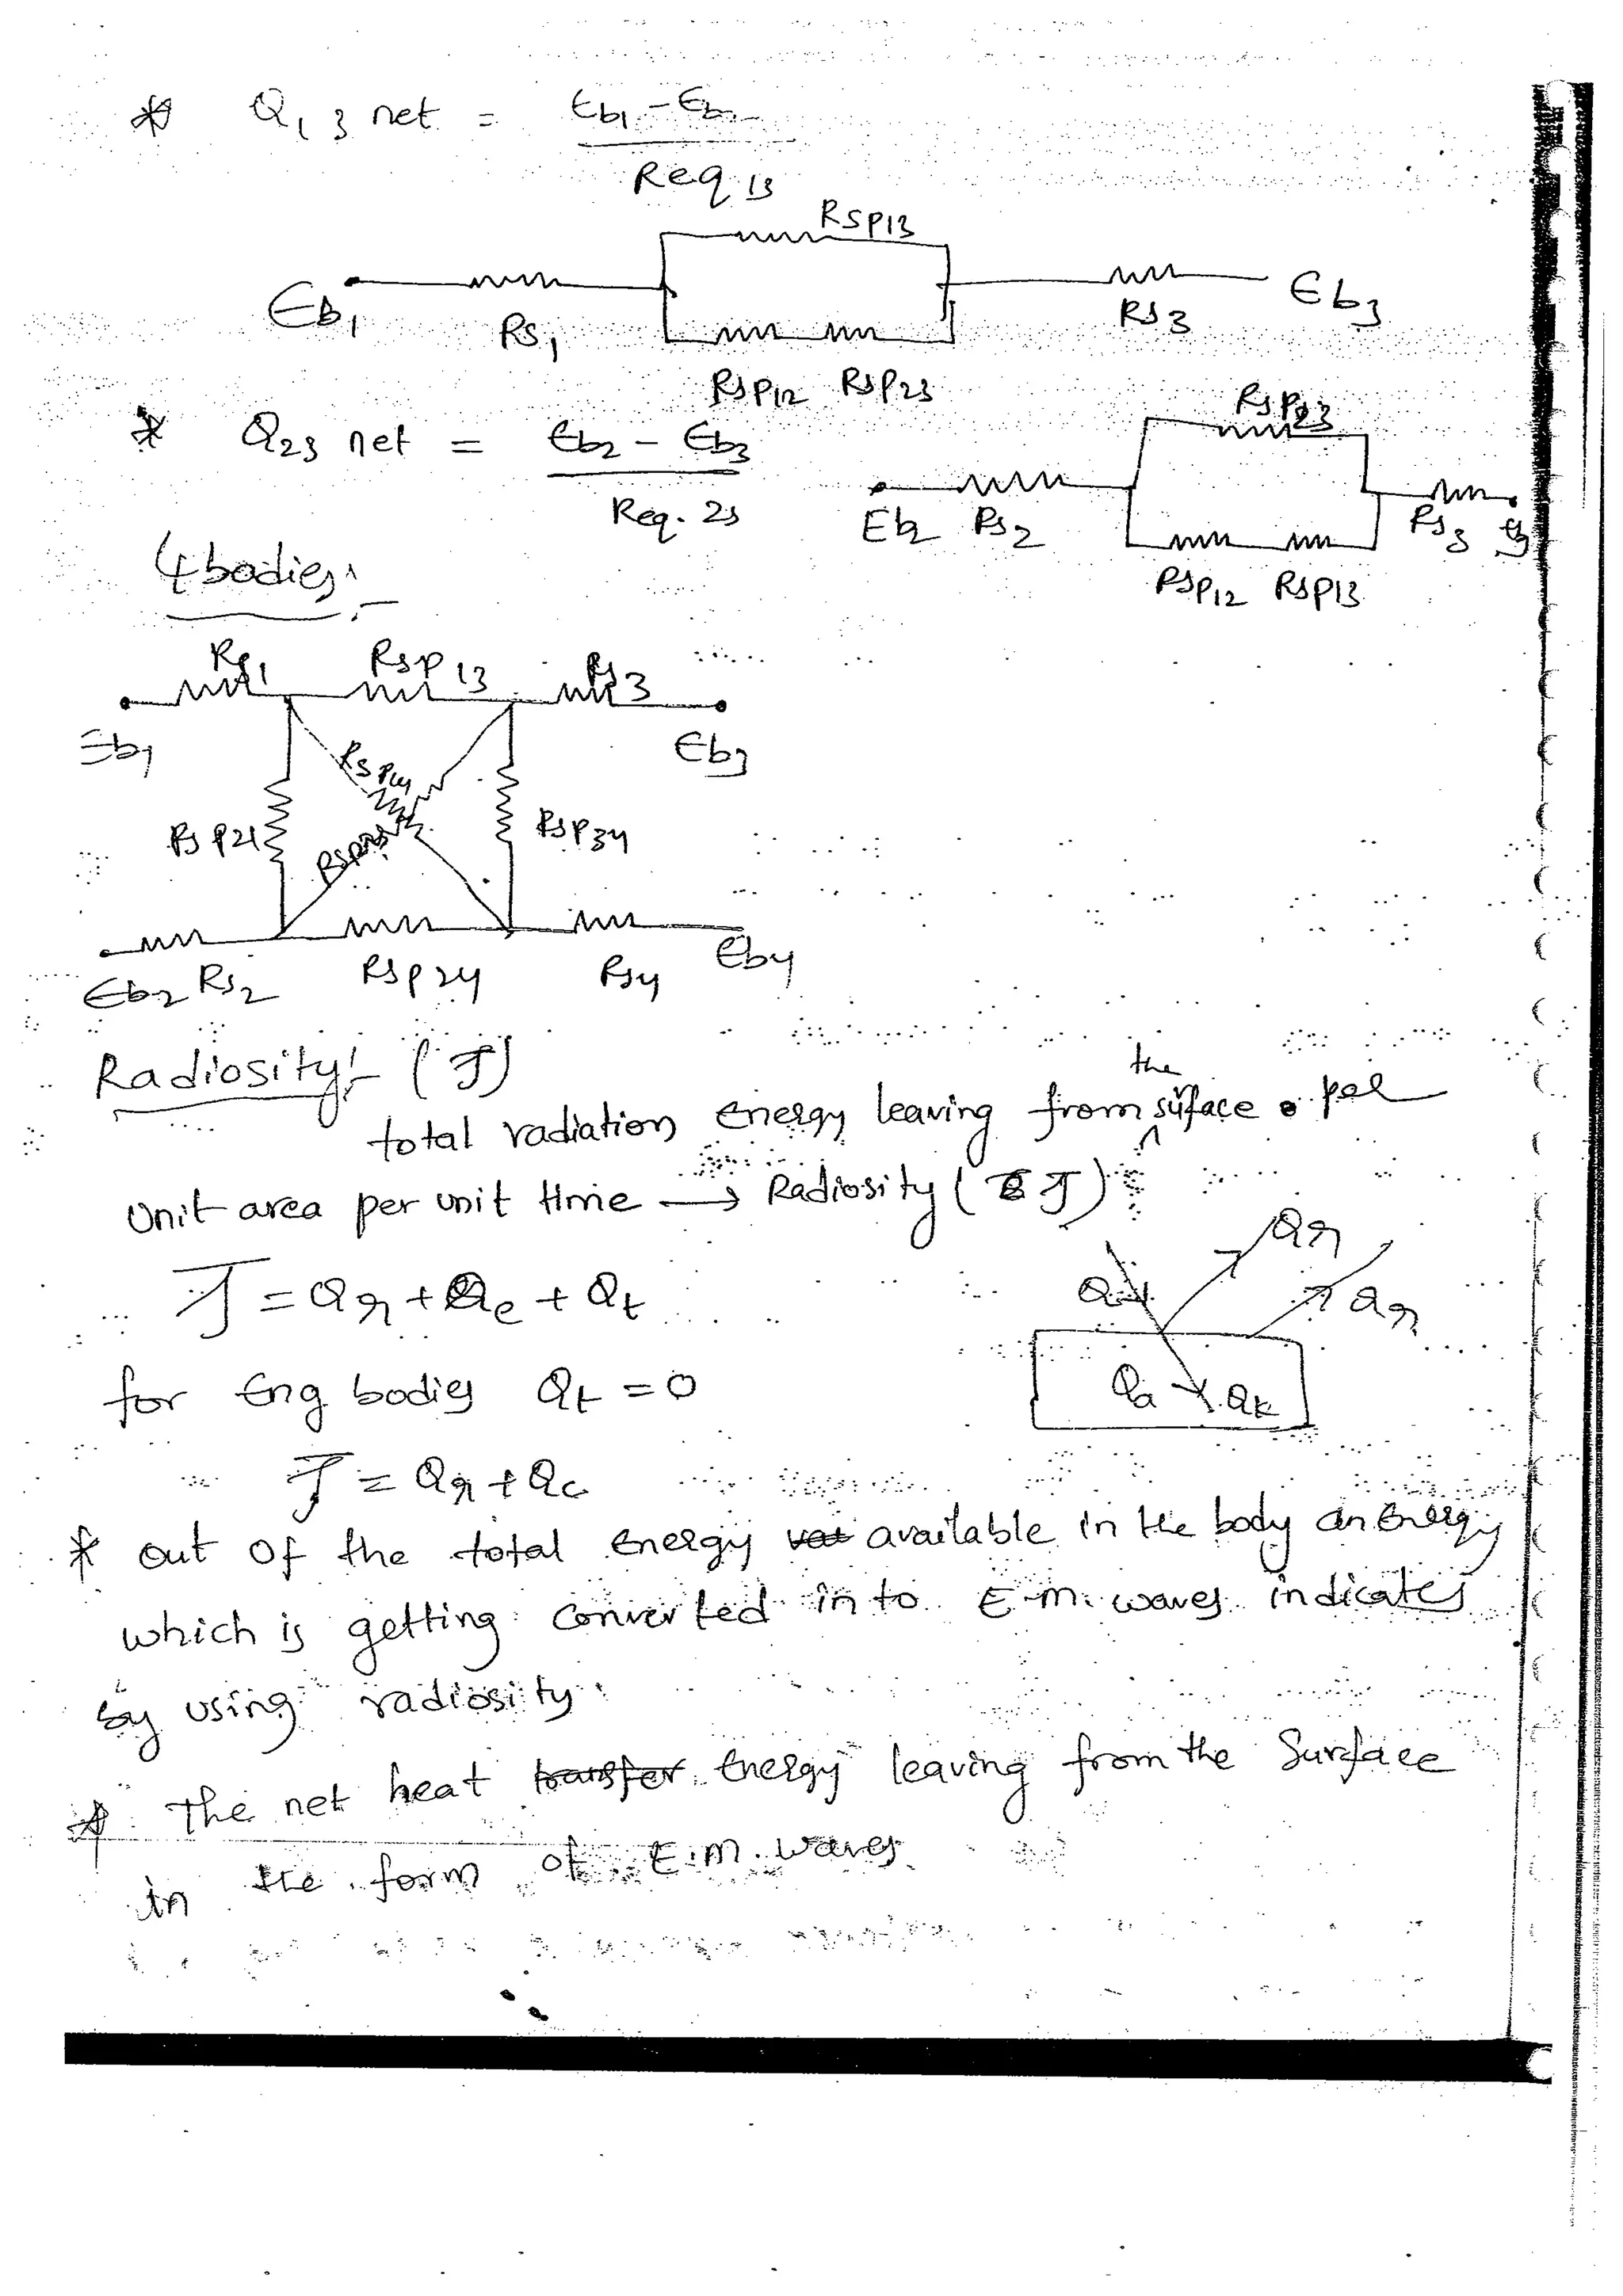 * Q13 net = Eb1 - Eb
Req 13
RSP13
Eb1 RS1 RS3 Eb3
RSP12 RSP23
* Q23 net = Eb2 - Eb3
Req. 23
RSP23
Eb2 RS2 RS3
RSP12 RSP13
4 bodies:
RS1 RSP13 RS3
Eb1 Eb3
RSP14
RSP21 RSP23 RSP34
Eb2 RS2 RSP24 RS4 Eb4
Radiosity:- (J)
the
total radiation energy leaving from ^ surface per
Unit area per unit time → Radiosity (J)
J = Qr + Qe + Qt
Q Qr Qr
for Eng bodies Qt = 0
Qa Qt
J = Qr + Qe
* out of the total energy available in the body an Energy
which is getting converted in to E.M. waves indicates
by using radiosity.
* The net heat transfer energy leaving from the Surface
in the form of E.M. waves